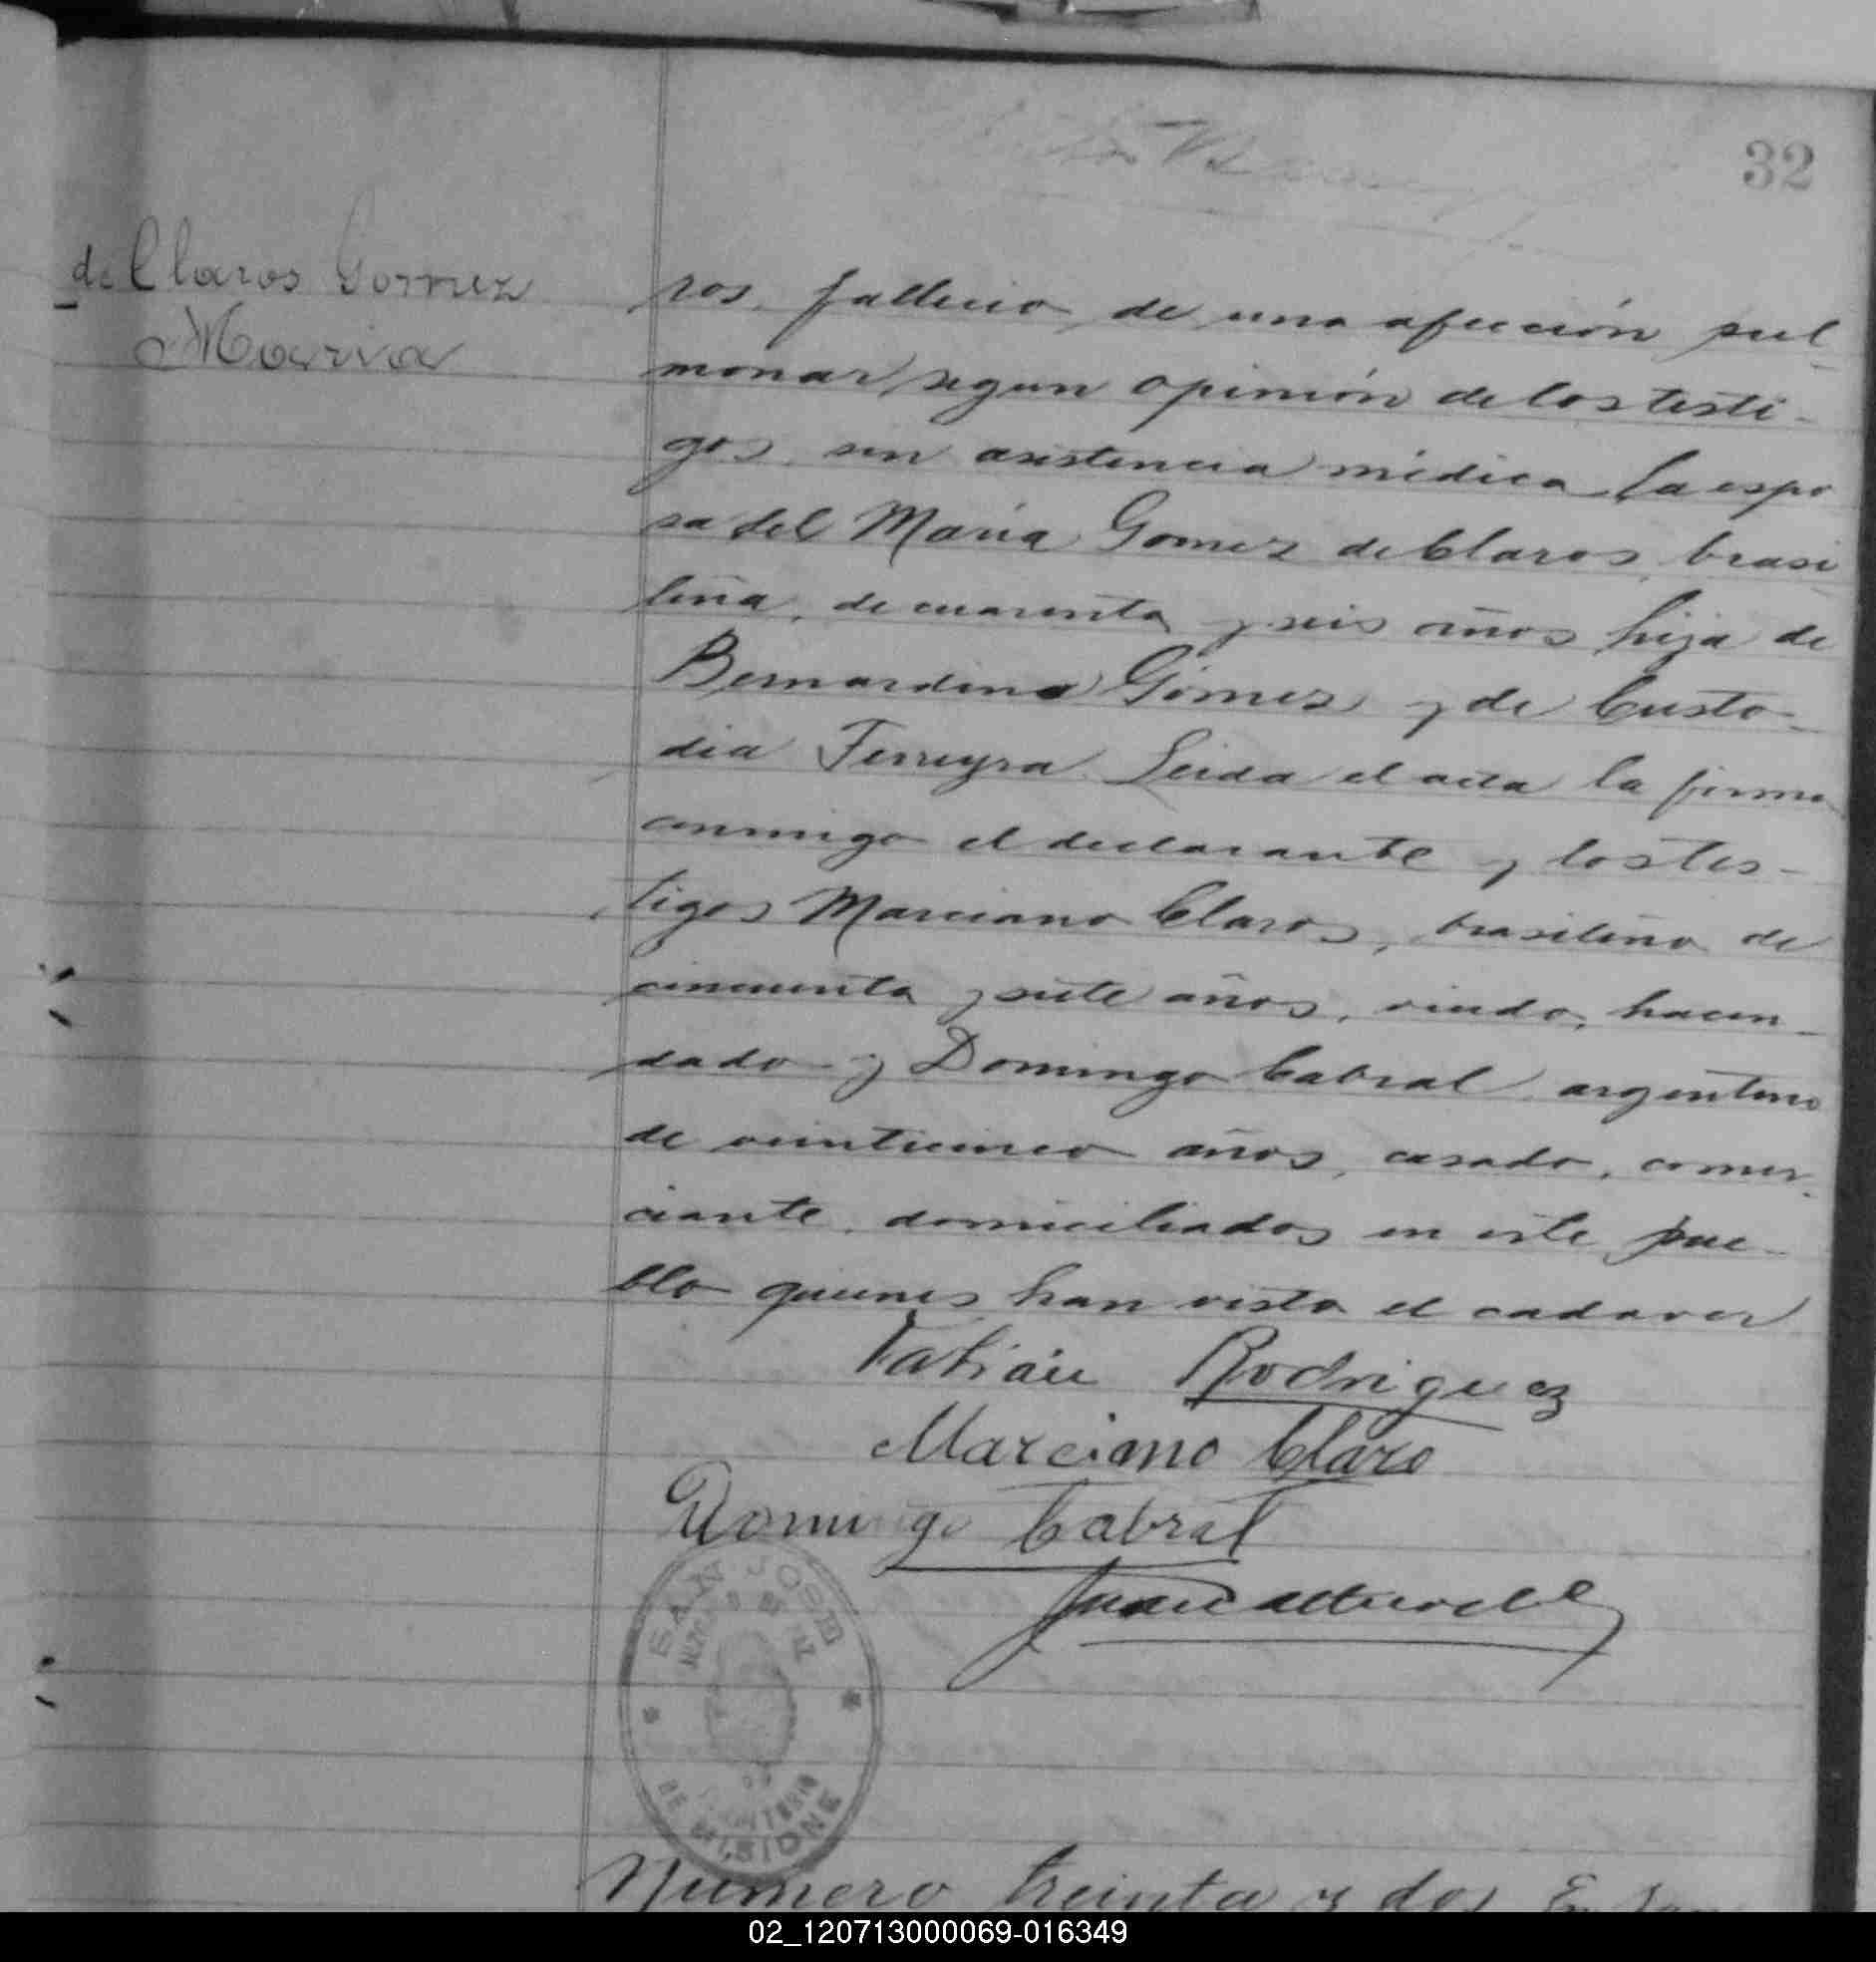 32
de Claros Gomez
Maria
ros. fallecio de una afección pul-
monar segun opinión de los testi-
gos, sin asistencia médica la espo
sa del María Gomez de Claros, brasi
leña, de cuarenta y seis años hija de
Bernardino Gómez y de Custo-
dia Ferreyra Leida el acta la firma
conmigo el declarante y los tes-
tigos Marciano Claros, brasileño de
cincuenta y siete años, viudo, hacen-
dado y Domingo Cabral argentino
de veinticinco años, casado, comer-
ciante, domiciliados en este pue-
blo quienes han visto el cadaver
Fabián Rodriguez
Marciano Claro
Domingo Cabral
Juan
SAN JOSE
JUZGADO DE PAZ
TERRITORIO
DE MISIONES
Numero treinta y dos En San
02_120713000069-016349